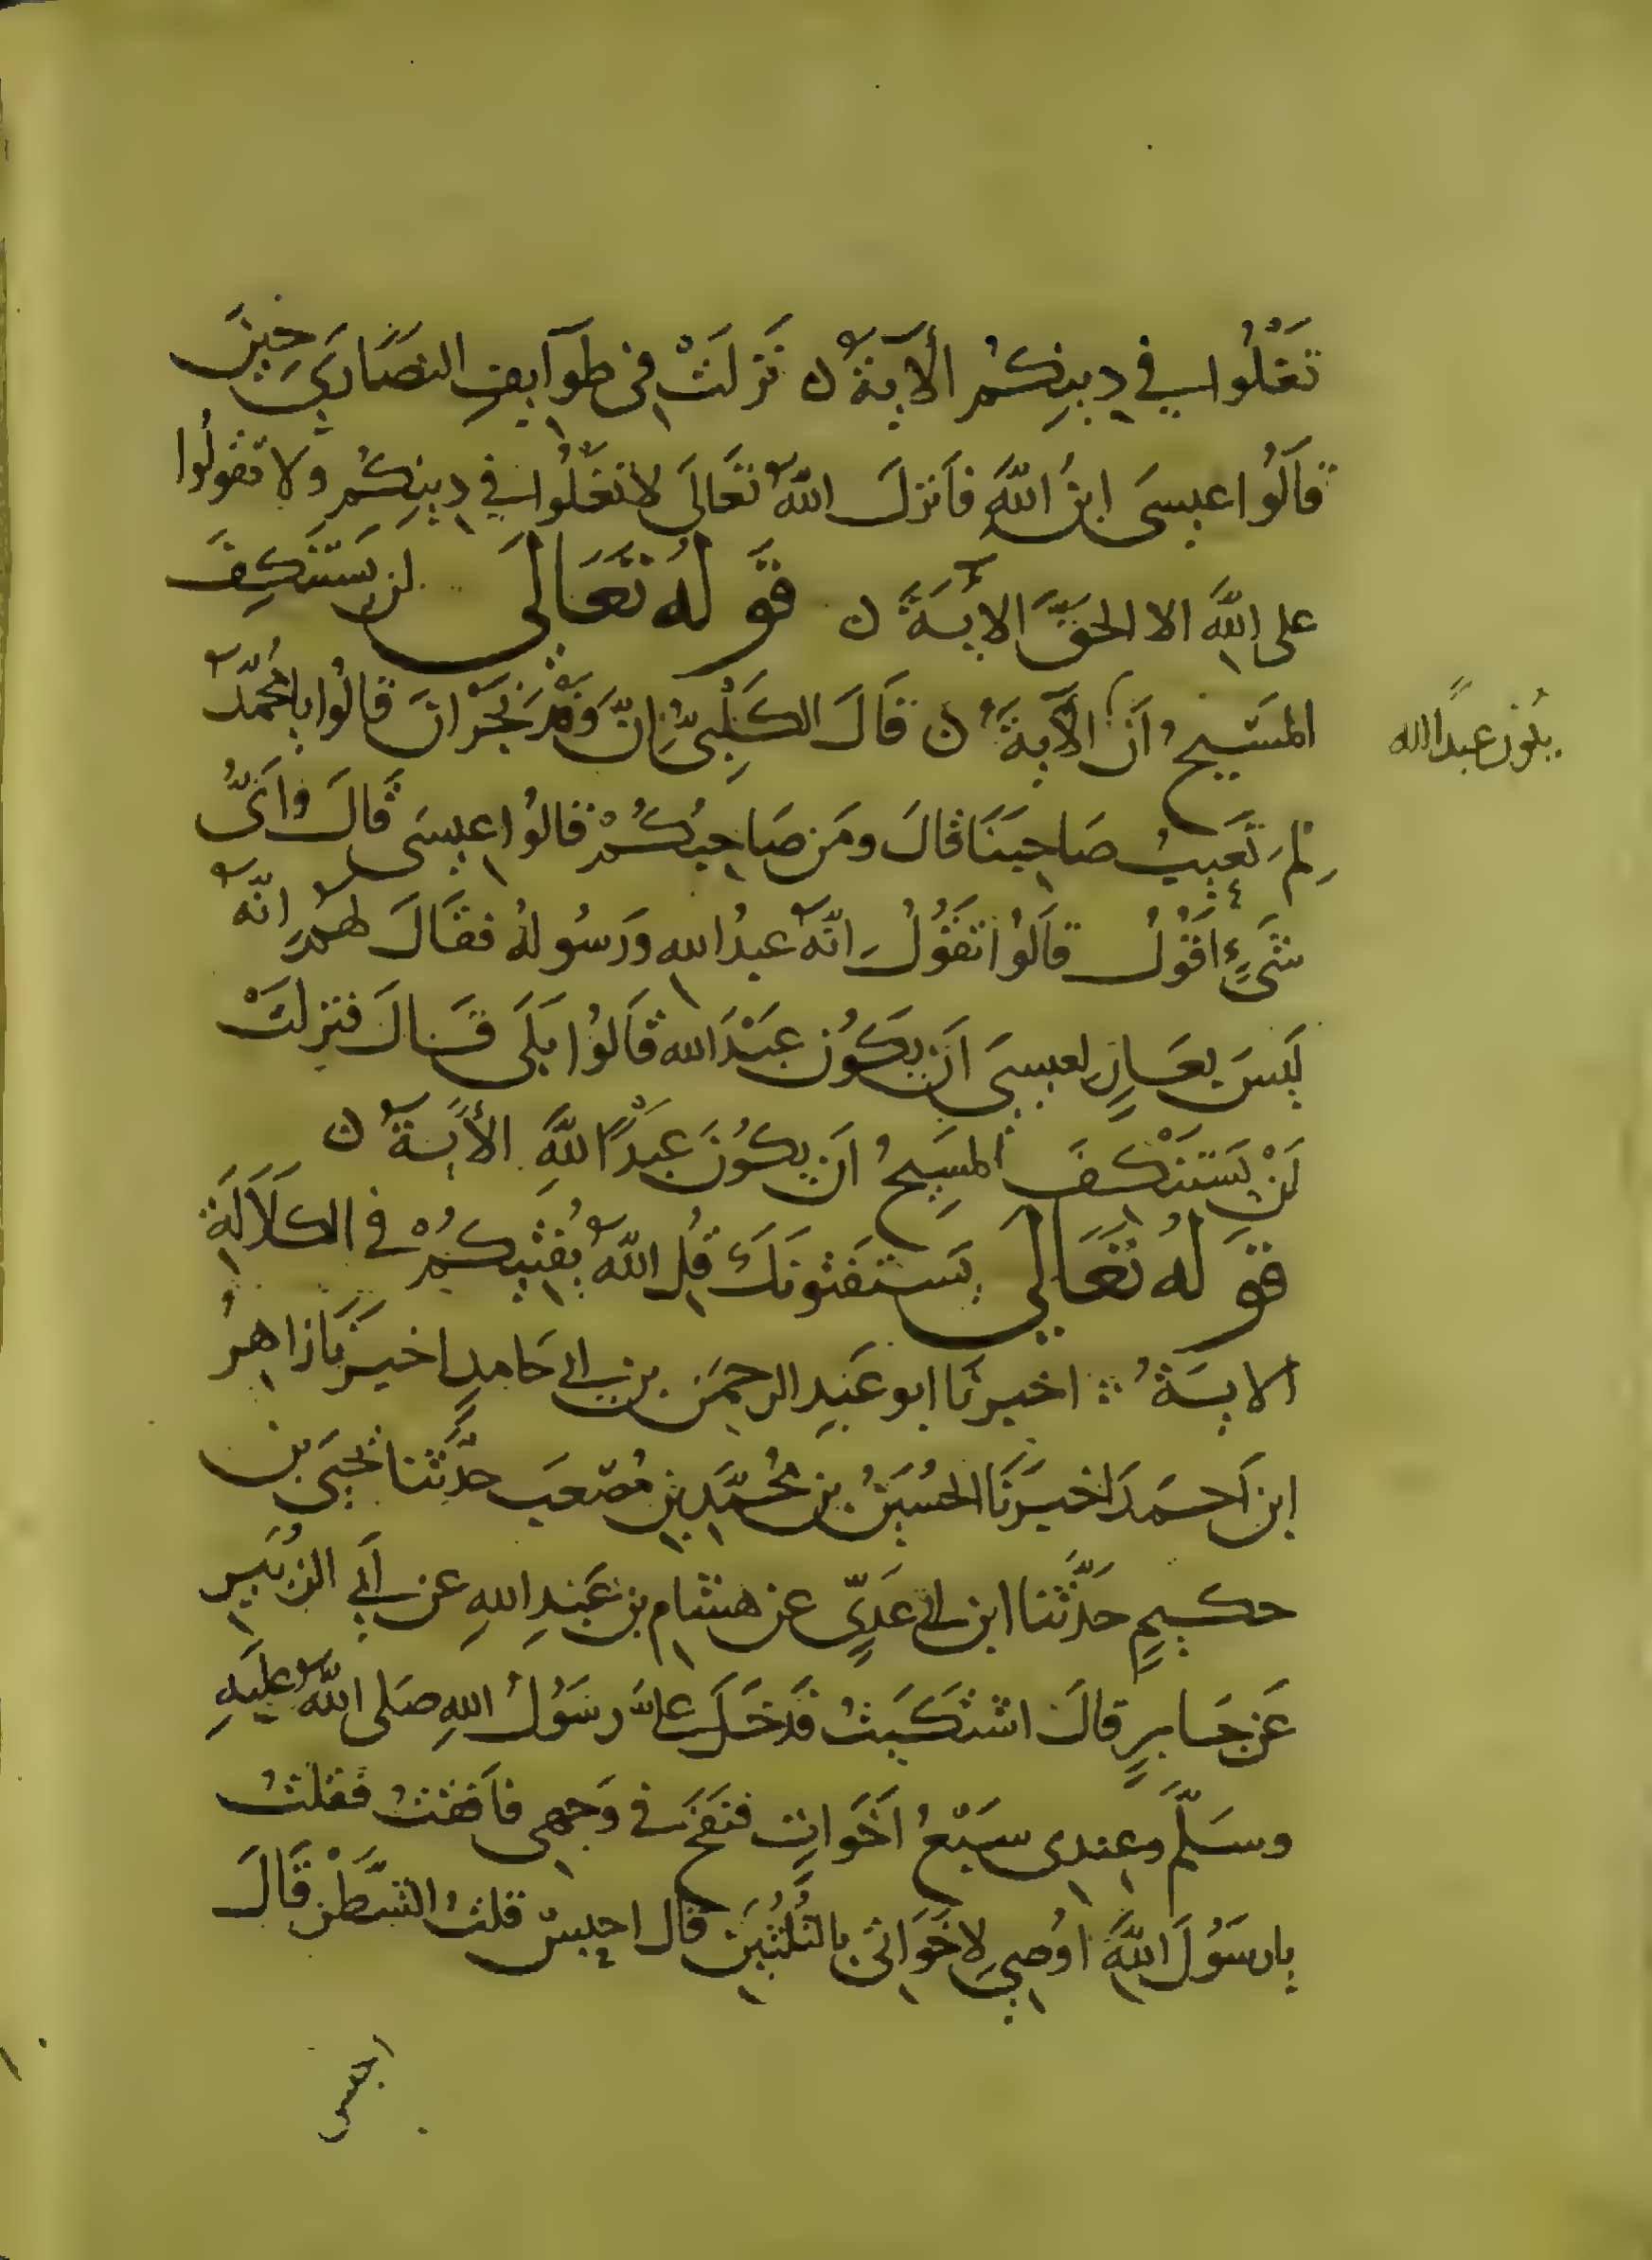 تَغْلُوا في دِينِكُم الآيةَ ن نَزلَتْ في طَوَايفِ النَصَارَى حِينَ
قَالُوا عيسَى ابنُ اللهِ فأنزلَ اللهُ تَعَالَى لا تَغلُوا في دِينِكُم ولا تقولُوا
على اللهِ الا الحقَّ الايةَ ن قولُه تَعَالَى لن يَستَنكِفَ
المَسيحُ أن الآيةَ ن قَالَ الكَلْبِيُّ إنَّ وَفْدَ نَجْرَانَ قالُوا يا محمّدُ
لِمَ تَعيبُ صَاحِبَنَا قالَ ومَن صَاحِبُكُمْ قالُوا عِيسَى قَالَ وأَيُّ
شَيءٍ اقُولُ قالُوا تَقُولُ انّهُ عبدُ الله ورَسُولهُ فقَالَ لهُم إنّهُ
لَيسَ بعَارٍ لعيسَى أن يكُونَ عَبْدَ الله قَالُوا بَلَى قَالَ فنزلَتْ
لَنْ يَستَنْكفَ المسِيحُ أن يكُونَ عَبْدًا للهِ الأيةَ ن
قولُه تَعَالَى يَستَفتُونَكَ قُلِ اللهُ يُفتِيكُمْ في الكَلاَلَةِ
الايةَ اخبرنَا ابو عَبدِ الرحمَن بن ابي حَامدٍ اخبرَنَا زاهرُ
ابن اَحمَدَ اخبرَنَا الحُسَينُ بن محُمَّدِ بنِ مُصْعَب حدَّثنا يَحيَى بن
حكيمٍ حَدَّثنا ابن ابي عَدِيٍّ عن هشامِ بن عَبدِ اللهِ عن أبي الزُبَيرِ
عَن جَابرٍ قالَ اشتَكَيتُ فدَخَلَ عليَّ رسَوُلُ اللهِ صَلى اللهُ عليَهِ
وسَلَّمَ وعِندِي سَبْعُ أخَوَاتٍ فنَفَخَ في وَجهي فأفقتُ فقلتُ
يا رسَوُلَ اللهِ اوُصي لاخَوَاتي بالثلُثَينِ قال احبسْ قلتُ الشَطْرَ قَالَ
يكون عبدًا لله
احبس